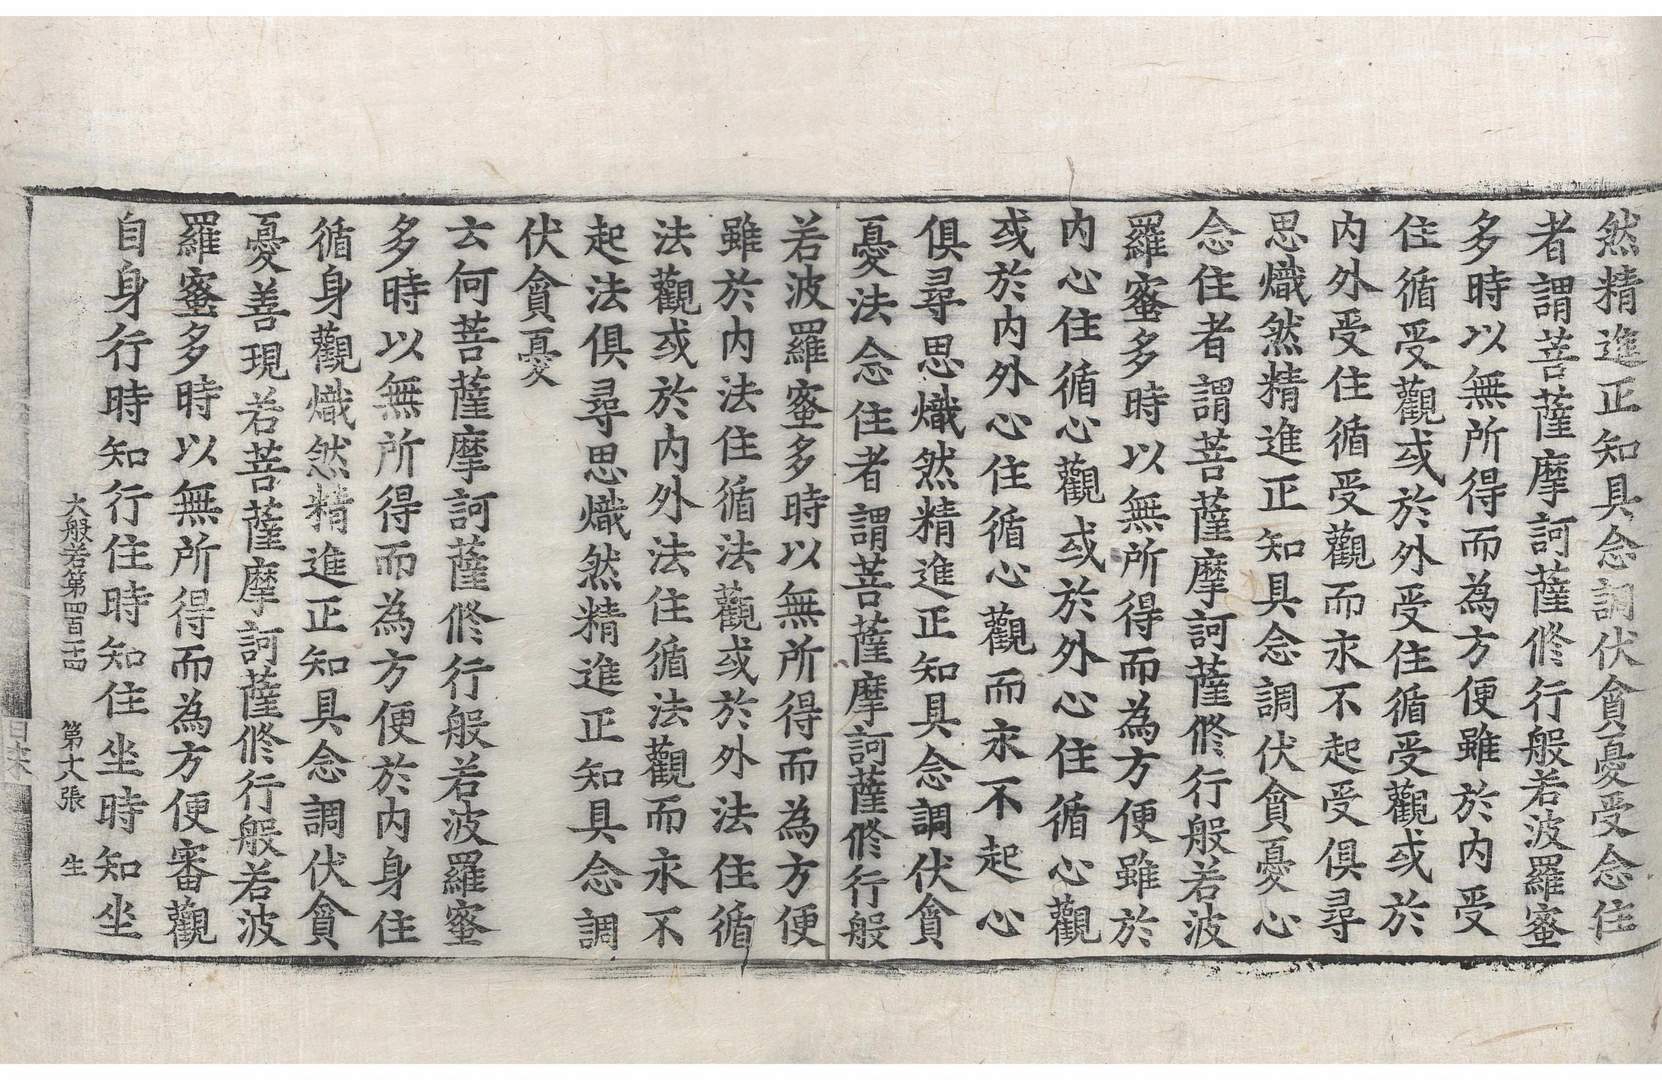 然精進正知具念調伏貪憂受念住
者謂菩薩摩訶薩修行般若波羅蜜
多時以無所得而為方便雖於內受
住循受觀或於外受住循受觀或於
內外受住循受觀而永不起受俱尋
思熾然精進正知具念調伏貪憂心
念住者謂菩薩摩訶薩修行般若波
羅蜜多時以無所得而為方便雖於
內心住循心觀或於外心住循心觀
或於內外心住循心觀而永不起心
俱尋思熾然精進正知具念調伏貪
憂法念住者謂菩薩摩訶薩修行般
若波羅蜜多時以無所得而為方便
雖於內法住循法觀或於外法住循
法觀或於內外法住循法觀而永不
起法俱尋思熾然精進正知具念調
伏貪憂
云何菩薩摩訶薩修行般若波羅蜜
多時以無所得而為方便於內身住
循身觀熾然精進正知具念調伏貪
憂善現若菩薩摩訶薩修行般若波
羅蜜多時以無所得而為方便審觀
自身行時知行住時知住坐時知坐
大般若第四百十四 第十八張 生